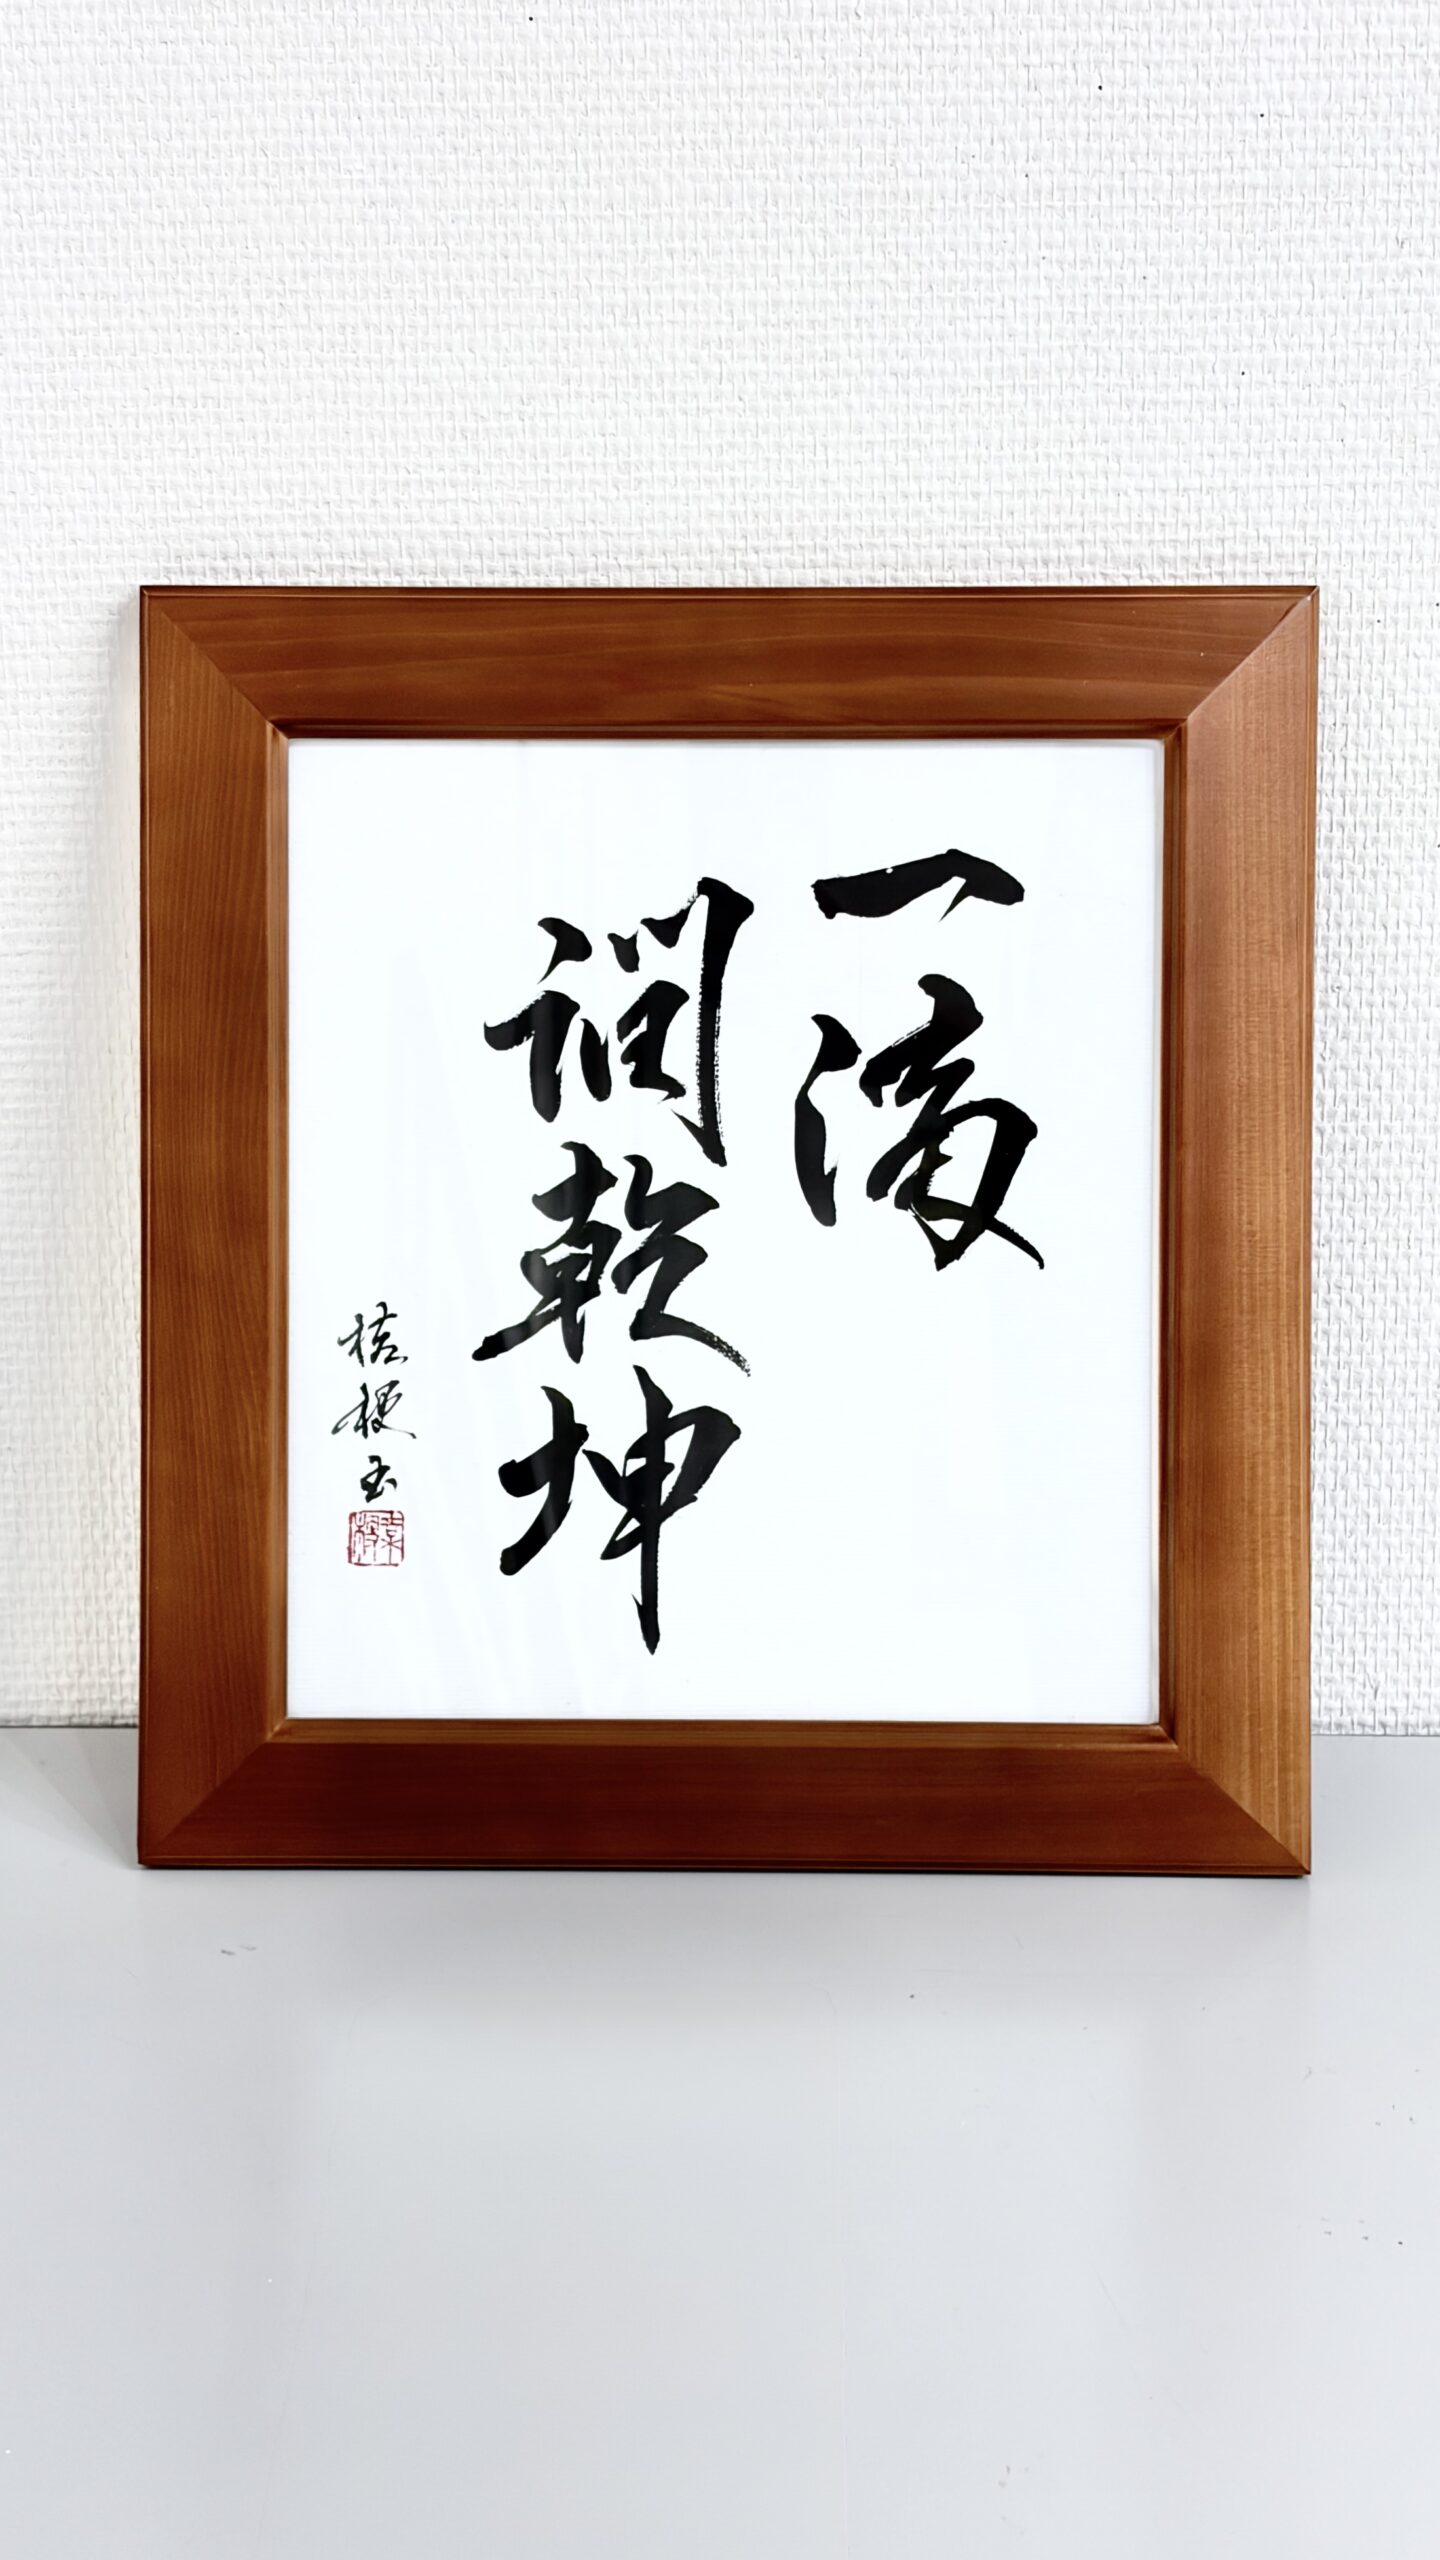 一滴
潤乾坤
桔梗玉